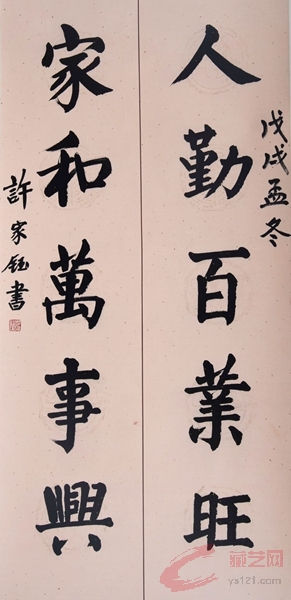 戊戌孟冬
人勤百業旺
家和萬事興
許家鈺書
藏艺网
ys121.com